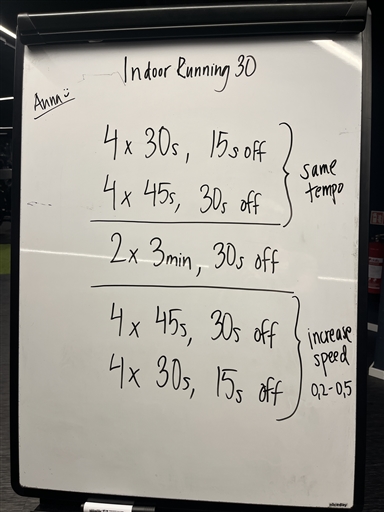 Indoor Running 30
Anna
4x 30s, 15s off
4x 45s, 30s off
same
tempo
2x 3min, 30s off
4x 45s, 30s off
4x 30s, 15s off
increase
speed
0,2-0,5